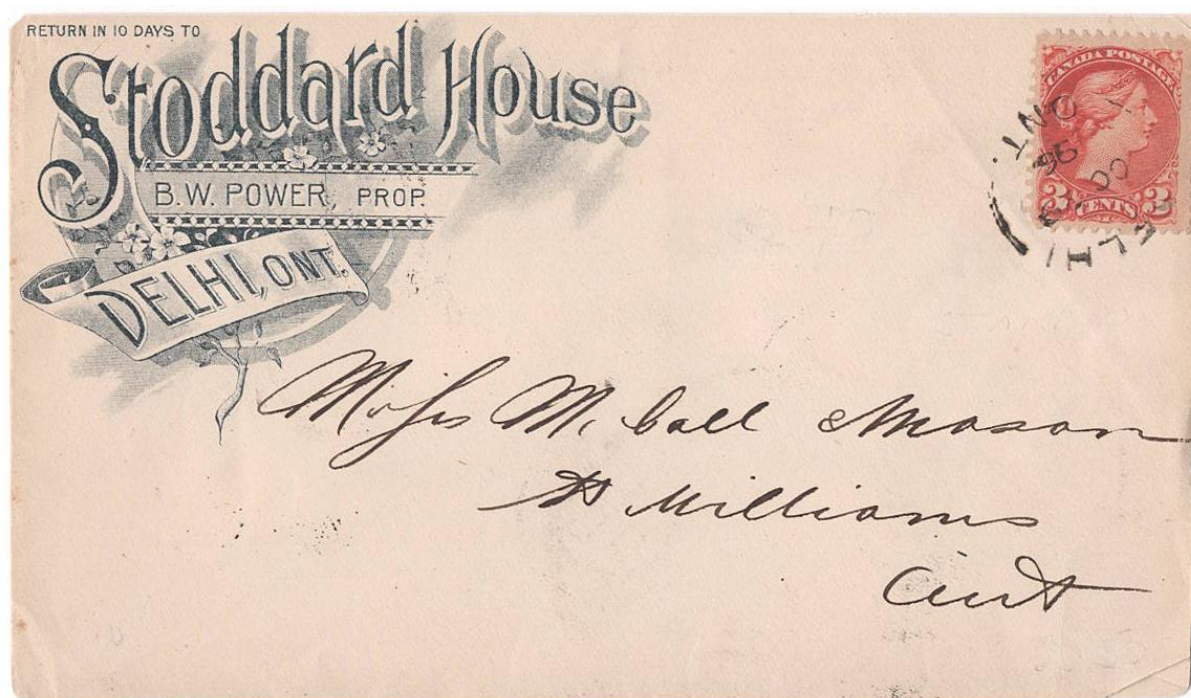 RETURN IN 10 DAYS TO
Stoddard House
B.W. POWER, PROP.
DELHI, ONT.
CANADA POSTAGE
3 CENTS 3
DELHI ONT.
OC
96
M. Call & Mason
St Williams
Ont